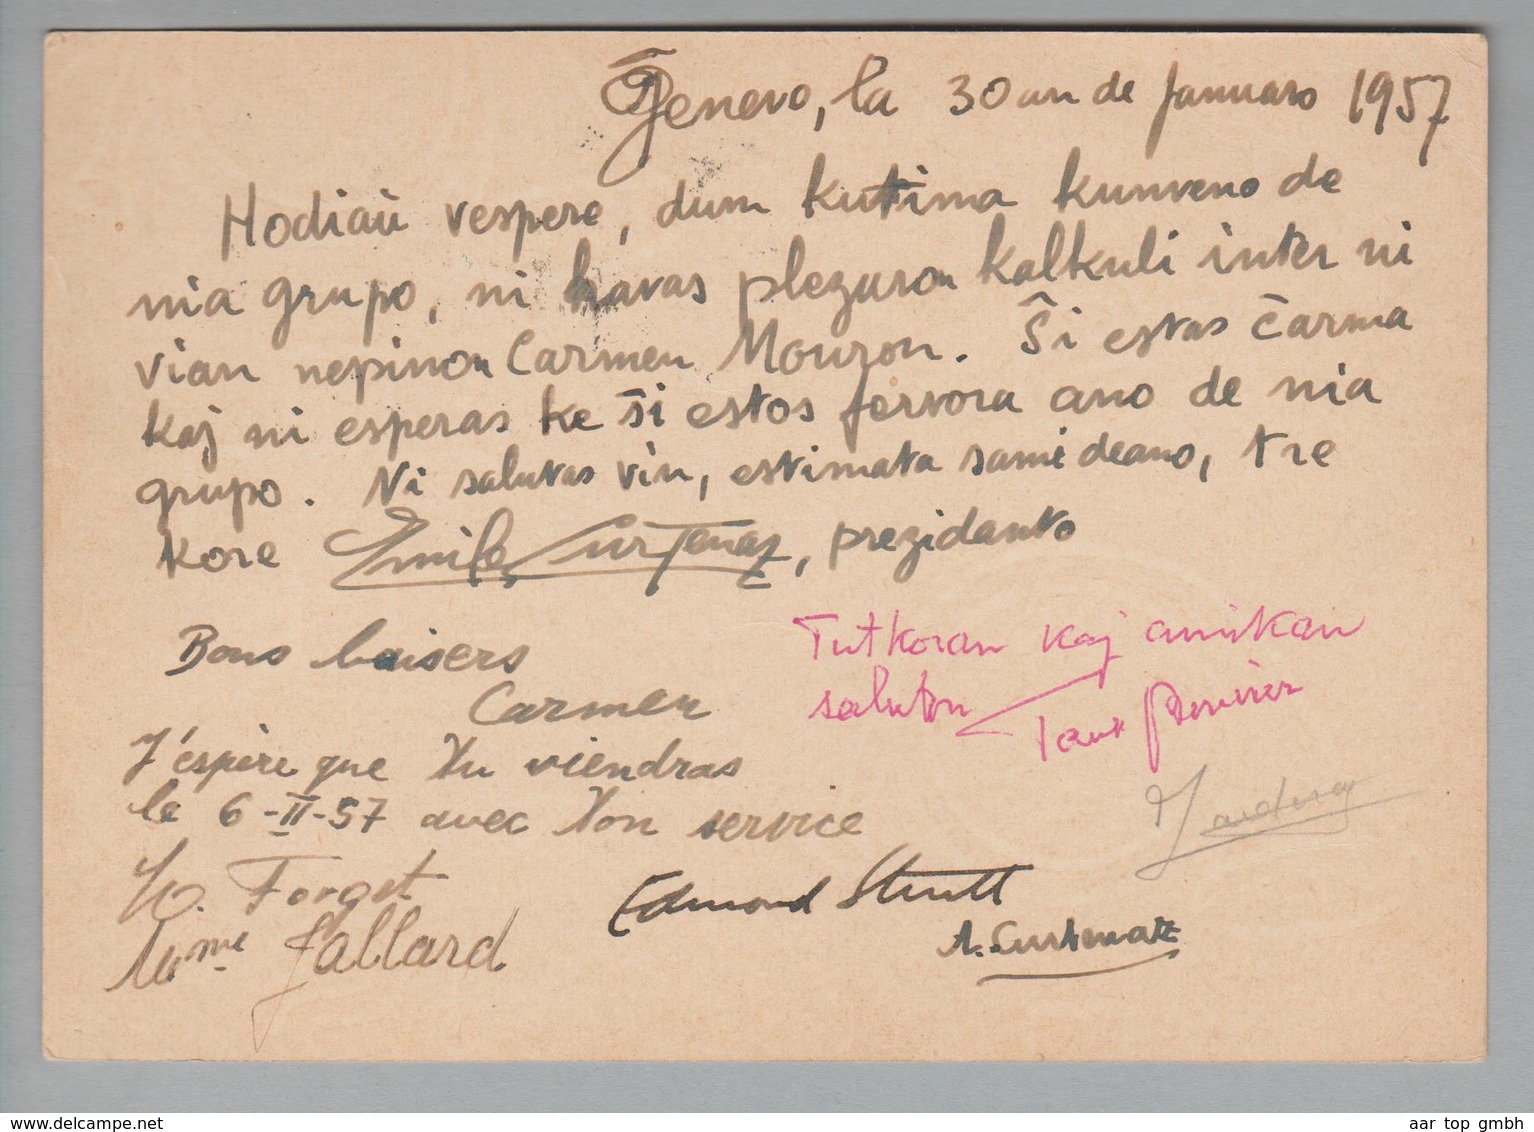 Genevo, la 30an de Januaro 1957
Hodiaŭ vespere, dum kutima kunveno de
nia grupo, ni havas plezuron kalkuli inter ni
vian nepinon Carmen Mouron. Ŝi estas ĉarma
kaj ni esperas ke ŝi estos fervora ano de nia
grupo. Ni salutas vin, estimata samideano, tre
kore Emile, prezidanto
Bons baisers
Carmen
Tutkoran kaj amikan
saluton
J'espère que tu viendras
le 6-II-57 avec ton service
Forget
Edmond
Mme Jallard
delcampe.net
aar top gmbh